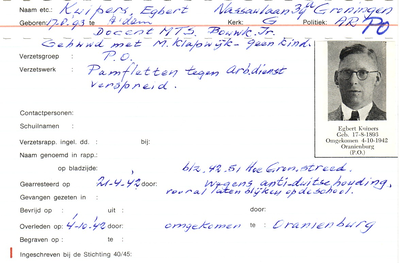 Naam etc.: Kuipers, Egbert Nassaulaan 39 Groningen
Geboren: 17-8-93 te A'dam Kerk: G Politiek: AR PO
Docent MTS. Bouwk. Jr.
Gehuwd met M. Klapwijk - geen kind.
Verzetsgroep : P.O.
Verzetswerk Pamfletten tegen Arb.dienst
verspreid.
Contactpersonen:
Schuilnamen :
Verzetsrapp. ingel. dd. : bij:
Naam genoemd in rapp.:
op bladzijde: blz. 42.51 Hoe Gron. streed.
Gearresteerd op 21-4-42 door: wegens anti-duitse houding,
vooral laten blijken op de school.
Gevangen gezeten in :
Bevrijd op : uit : door:
Overleden op : 4-10-42 door: omgekomen te : Oranienburg
Begraven op : te :
Ingeschreven bij de Stichting 40/45:
Egbert Kuipers
Geb. 17-8-1893
Omgekomen 4-10-1942
Oranienburg
(P.O.)